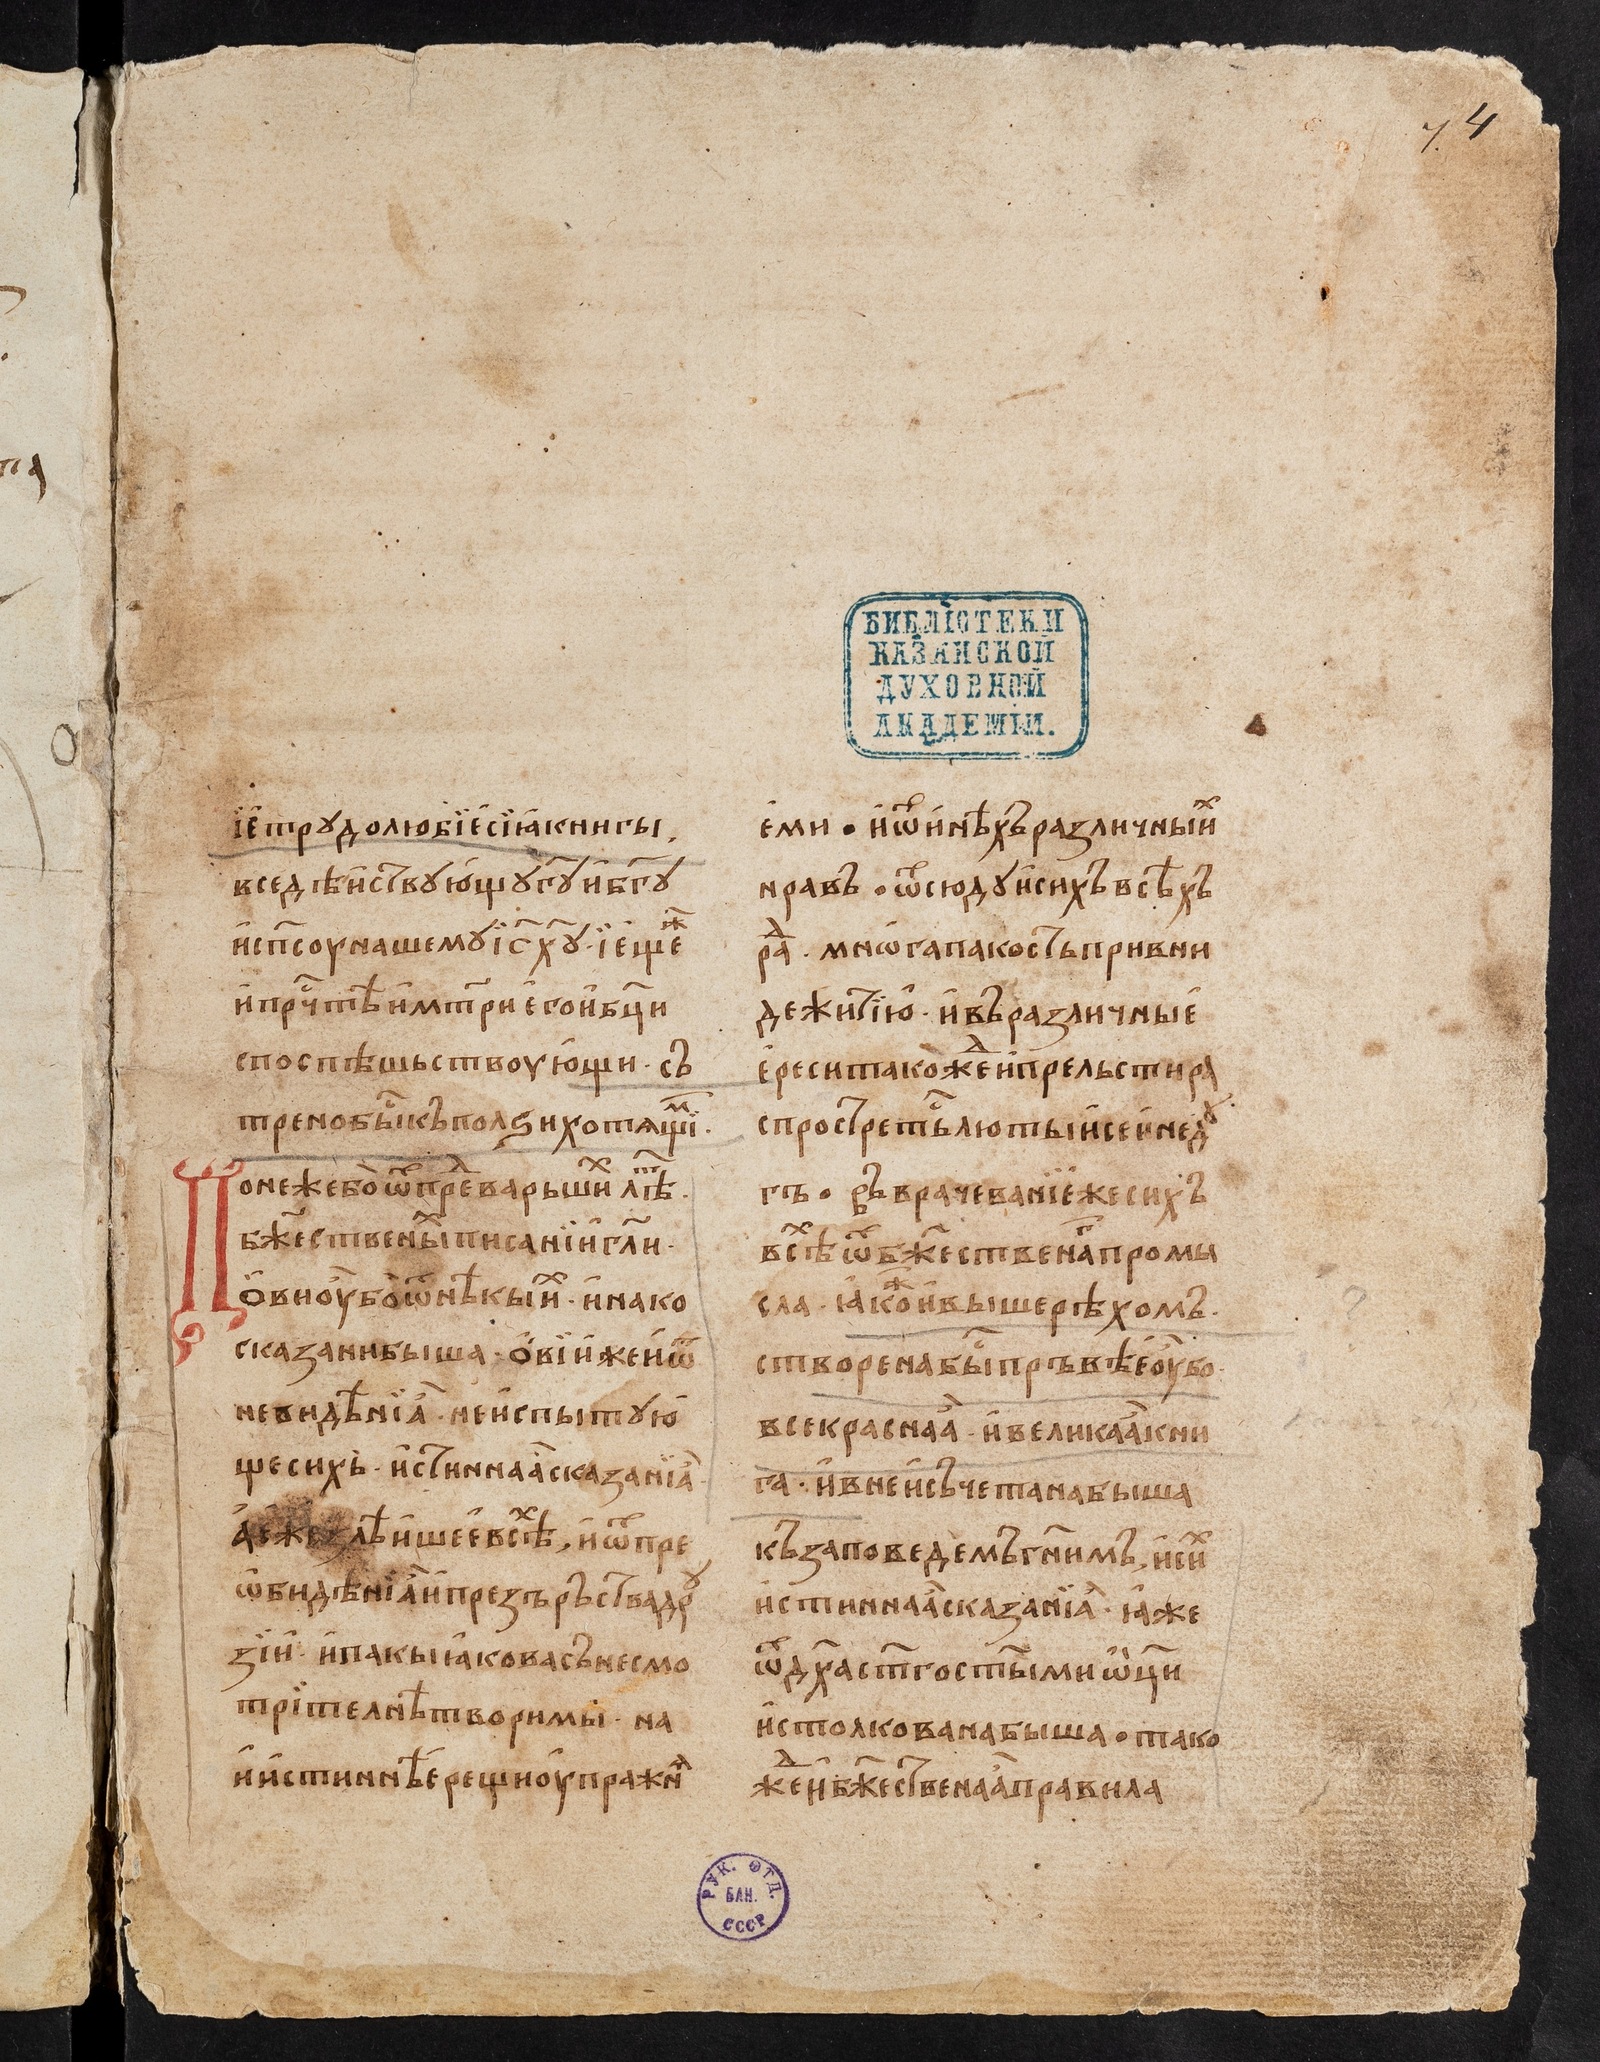 7. 4
БИБЛІОТЕКИ
КАЗАНСКОЙ
ДУХОВНОЙ
АКАДЕМІИ.
їе трꙋдолюбїе сїѧ книгы.
вседѣиствꙋющꙋ гꙋ҃ и бг҃ꙋ
и сп҃соу нашемꙋ їс҃ хꙋ҃ · ї ещеⷤ
и прⷱ҇тѣи мт҃ри его и бц҃и
споспѣшьствоующи · съ
тренобыⷭ҇ къ полѕи хотѧщїⷨ ·
Понеже бо ѿ преⷣварьшиⷯ лѣⷮ ·
бжⷭ҇ественыⷯ писанїи гл҃и ·
ѻвно ѹбо ѿ нѣкыиⷯ · инако
сказани быша · ѻвїи же и ѿ
невидѣнїа · не испытꙋю
ще сихъ · истиннаа сказанїа ·
а еже ѕлѣишее всѣⷯ, и ѿ пре
ѡбидѣнїа и презърьства дрꙋ
зїи · и пакы ꙗкова съ несмо
трїтелнѣ творимы · на
и истиннѣе рещи ѹпражнѧ
еми • и ѿ инѣхъ различныиⷯ
нравъ • ѿсюдꙋ и сихъ всѣхъ
раⷣ · мнѡга пакость привни
де житїю · и въ различные
ереси такоⷤ же и прельсти ра
спрострет лютыи сеи недꙋ
гъ • връ врачеванїе же сихъ
всѣⷯ ѿ бжⷭ҇ественаⷢ промы
сла · ꙗкоⷤ и выше рѣхомъ ·
створена быⷭ҇ пръвѣе ѹбо
всекраснаа · и великаа кни
га · и в неи съчетана быша
къ заповедемъ гн҃имъ, и сиⷯ
истиннаа сказанїа · ꙗже
ѿ дх҃а ст҃го ст҃ыми ѡц҃и
истолкована быша • тако
жеⷣ и бжⷭ҇ественаа правила
РУК. ОТД.
БАН.
СССР